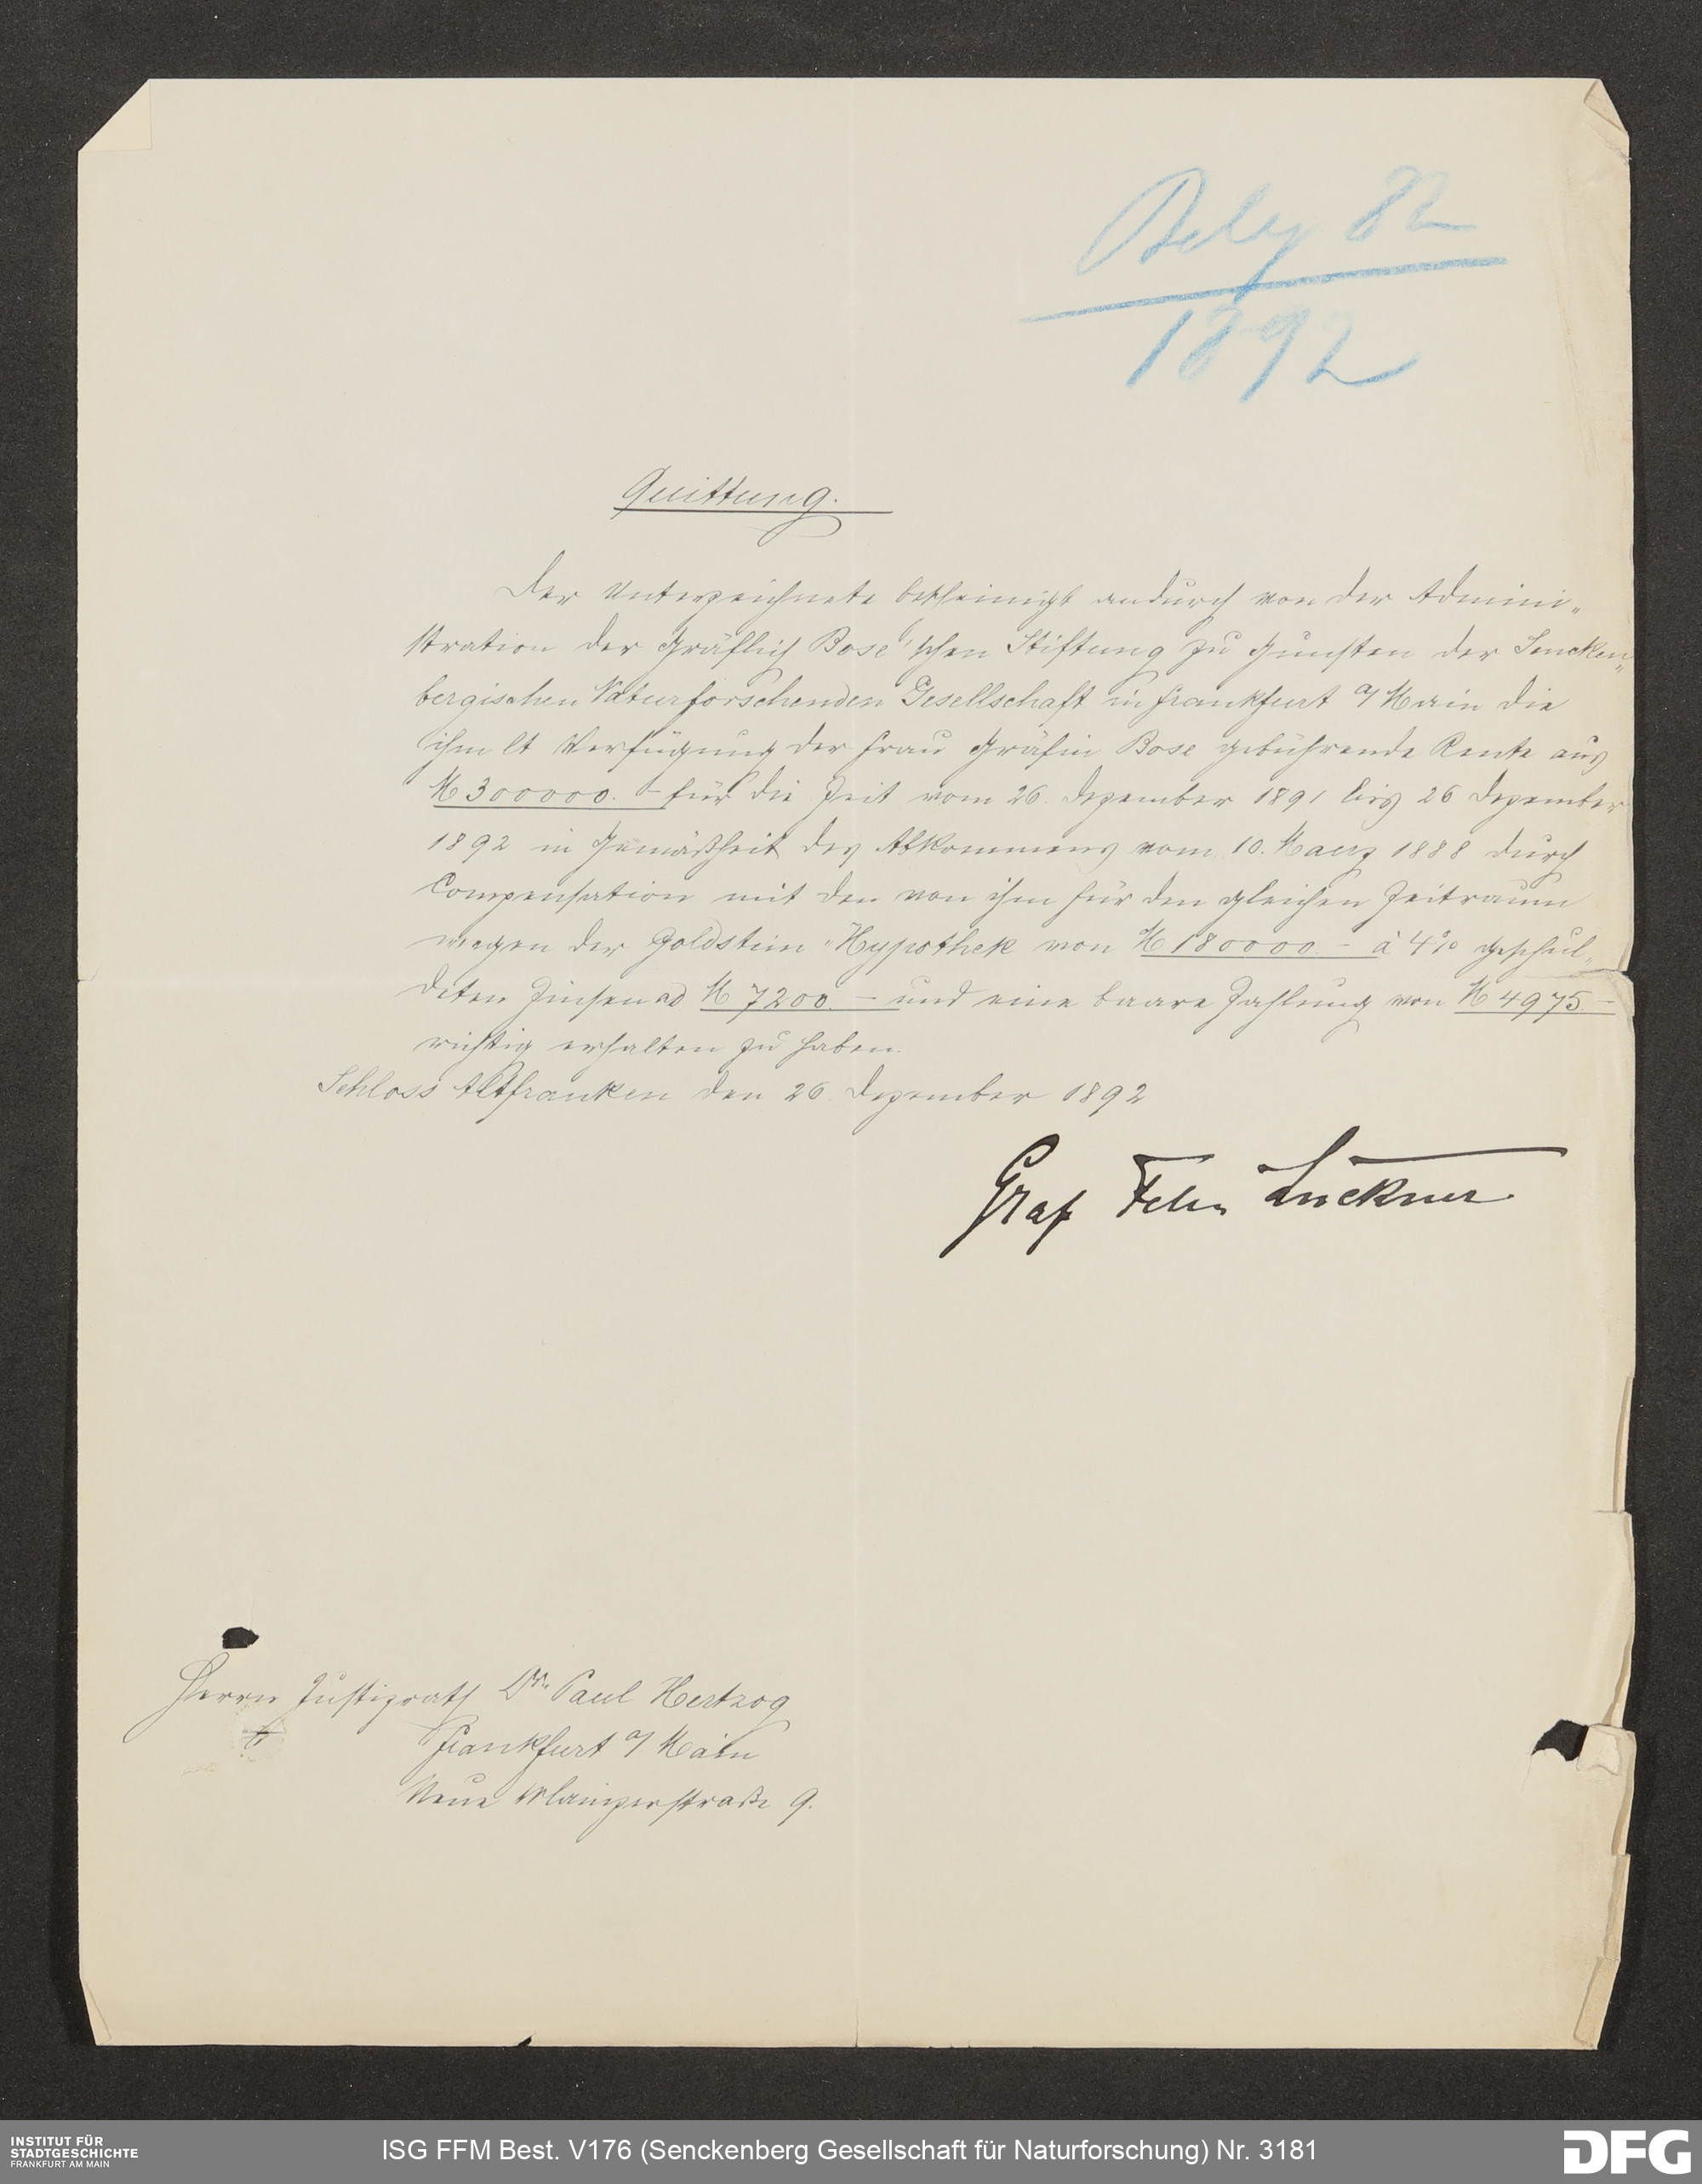 Beleg 82
1892
Quittung.
Der Unterzeichnete bescheinigt andurch von der Admini„
stration der Gräflich Bose'schen Stiftung zu Gunsten der Sencken„
bergischen Naturforschenden Gesellschaft in Frankfurt a/ Main die
ihm lt Verfügung der Frau Gräfin Bose gebührende Rente aus
M 300000.– für die Zeit vom 26. Dezember 1891 bis 26 Dezember
1892 in Gemäßheit des Abkommens vom 10. Maerz 1888 durch
Compensation mit den von ihm für den gleichen Zeitraum
wegen der Goldstein-Hypothek von M 180000.– à 4% geschul„
deten Zinsen ad M 7200.– und eine baare Zahlung von M 4975.–
richtig erhalten zu haben.
Schloss Altfranken den 26. Dezember 1892
Graf Felix Luckner
Herrn Justizrath Dr. Paul Hertzog
Frankfurt a/ Main
Neue Mainzerstraße 9.
INSTITUT FÜR
STADTGESCHICHTE
FRANKFURT AM MAIN
ISG FFM Best. V176 (Senckenberg Gesellschaft für Naturforschung) Nr. 3181
DFG